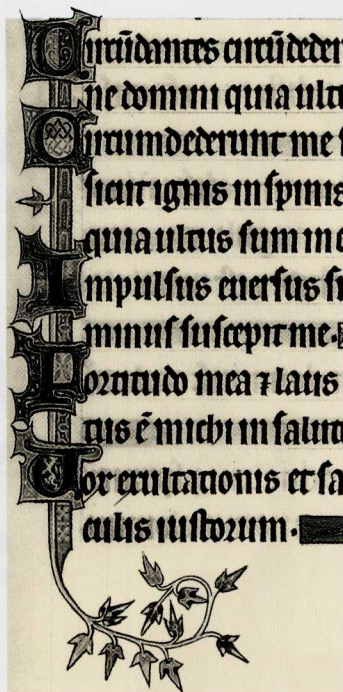 Circūdantes circūdeder
ne domini quia ultu
Circumdederunt me s
sicut ignis in spinis
quia ultus sum in e
Impulsus euersus su
minus suscepit me.
Fortitudo mea ⁊ laus
tus ē michi in salute
Vox exultationis et sa
culis iustorum.